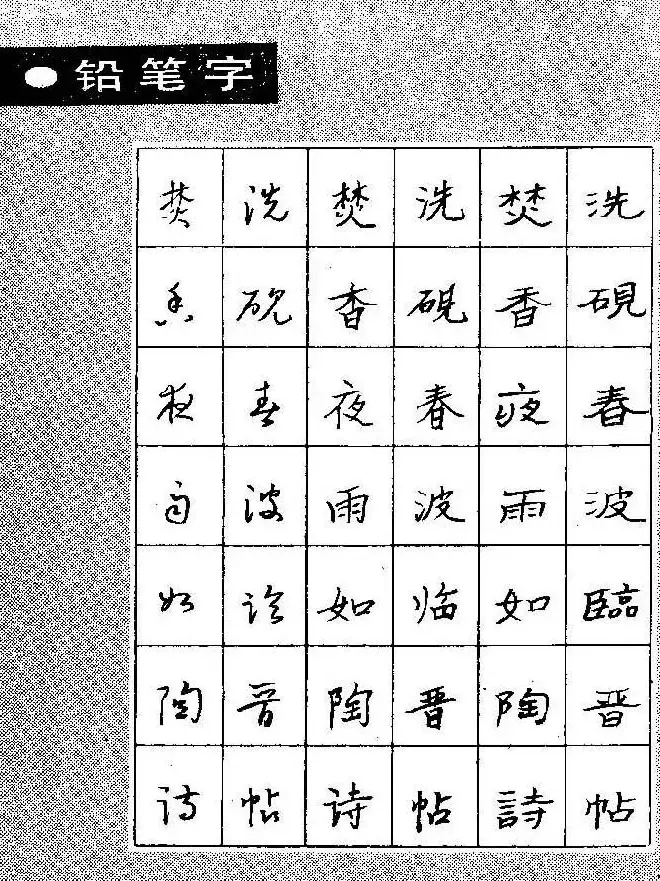 铅笔字
洗硯春波臨晋帖
焚香夜雨如陶詩
洗硯春波临晋帖
焚香夜雨如陶诗
洗砚春波临晋帖
焚香夜雨如陶诗